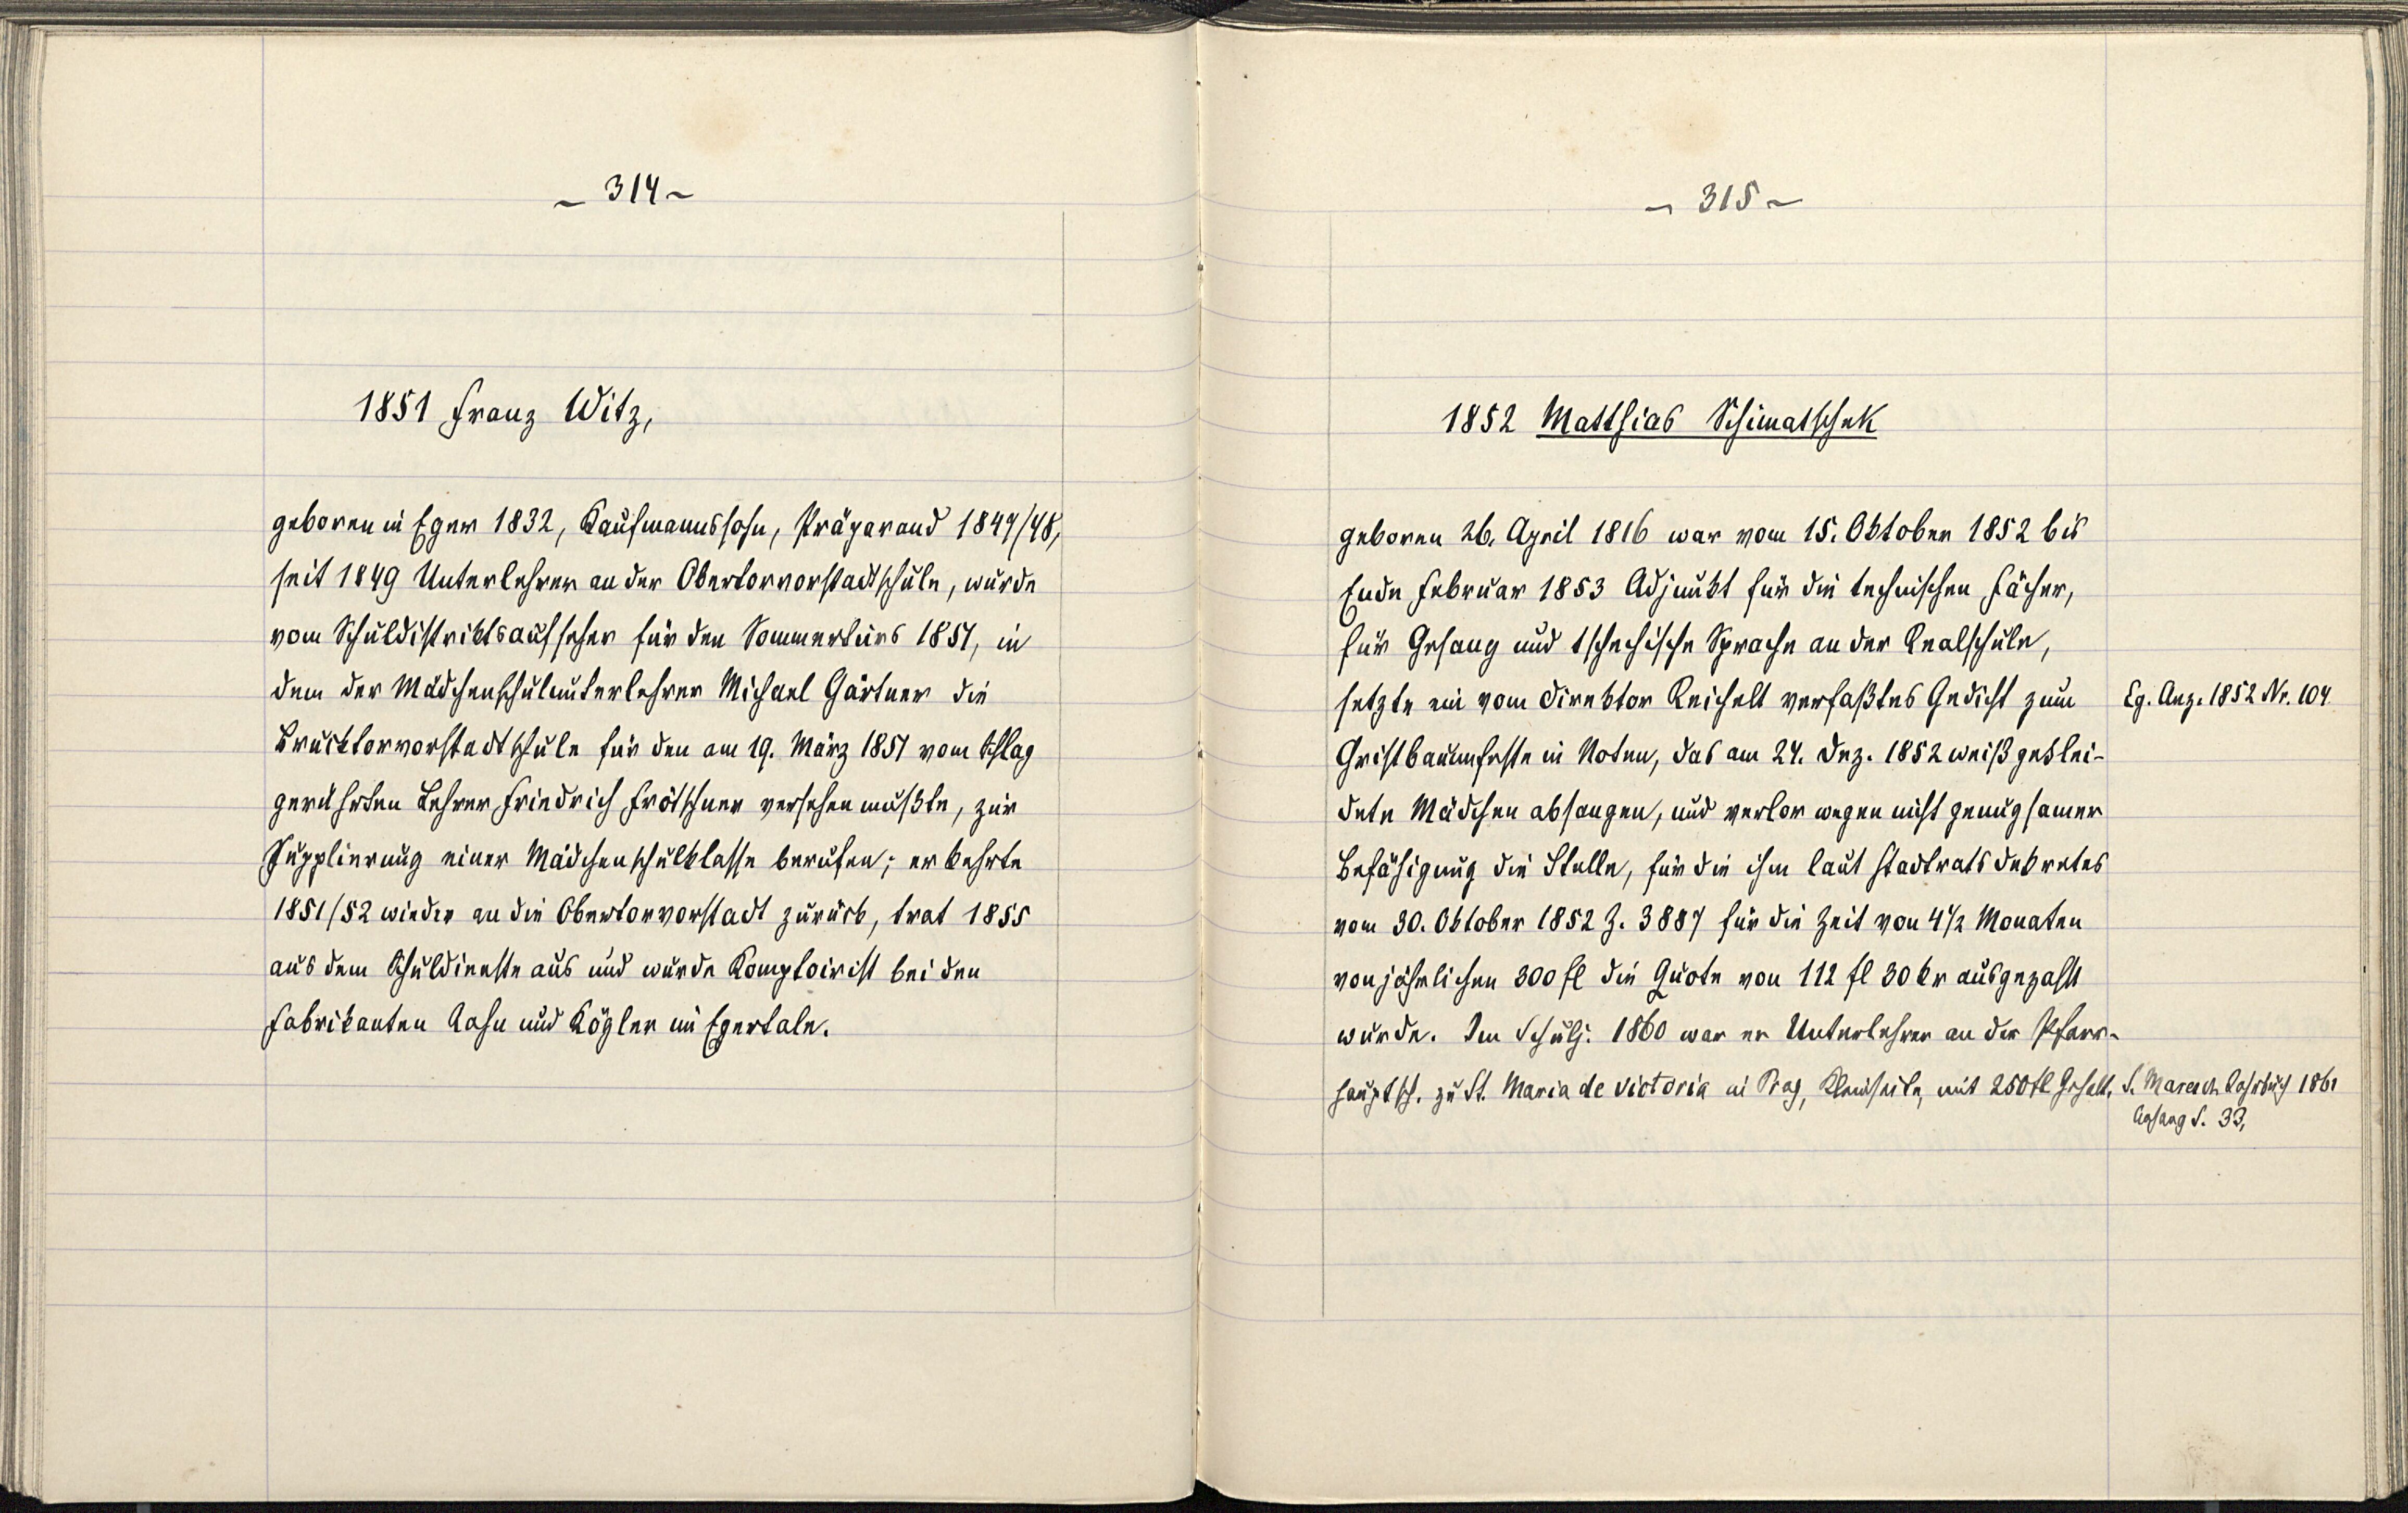 - 314 -
1851 Franz Witz,
geboren in Eger 1832, Kaufmannssohn, Präparand 1847/48,
seit 1849 Unterlehrer an der Obertorvorstadtschule, wurde
vom Schuldistriktsaufseher für den Sommerkurs 1851, in
dem der Mädchenschulunterlehrer Michael Gärtner die
Brucktorvorstadtschule für den am 19. März 1851 vom Schlag
gerührten Lehrer Friedrich Frötschner versehen mußte, zur
Supplierung einer Mädchenschulklasse berufen; er kehrte
1851/52 wieder an die Obertorvorstadt zurück, trat 1855
aus dem Schuldienste aus und wurde Komptoirist bei den
Fabrikanten und Kögler im Egertale.
- 315 -
1852 Matthias Schimatschek
geboren 26. April 1816 war vom 15. Oktober 1852 bis
Ende Februar 1853 Adjunkt für die technischen Fächer,
für Gesang und tschechische Sprache an der Realschule,
setzte ein vom Direktor Reichelt verfaßtes Gedicht zum
Eg. Anz. 1852 Nr. 104.
Christbaumfeste in Noten, das am 24. Dez. 1852 weiß geklei-
dete Mädchen absangen, und verlor wegen nicht genugsamer
Befähigung die Stelle, für die ihm laut Stadtratsdekretes
vom 30. Oktober 1852 Z. 3887 für die Zeit von 4 1/2 Monaten
von jährlichen 300 fl die Quote von 112 fl 30 kr ausgezahlt
wurde. Im Schulj. 1860 war er Unterlehrer an der Pfarr-
hauptsch. zu St. Maria de victoria in Prag, Kleinseite, mit 250 fl Gehalt.
S. Maresch Jahrbuch 1861
Anhang S. 33,